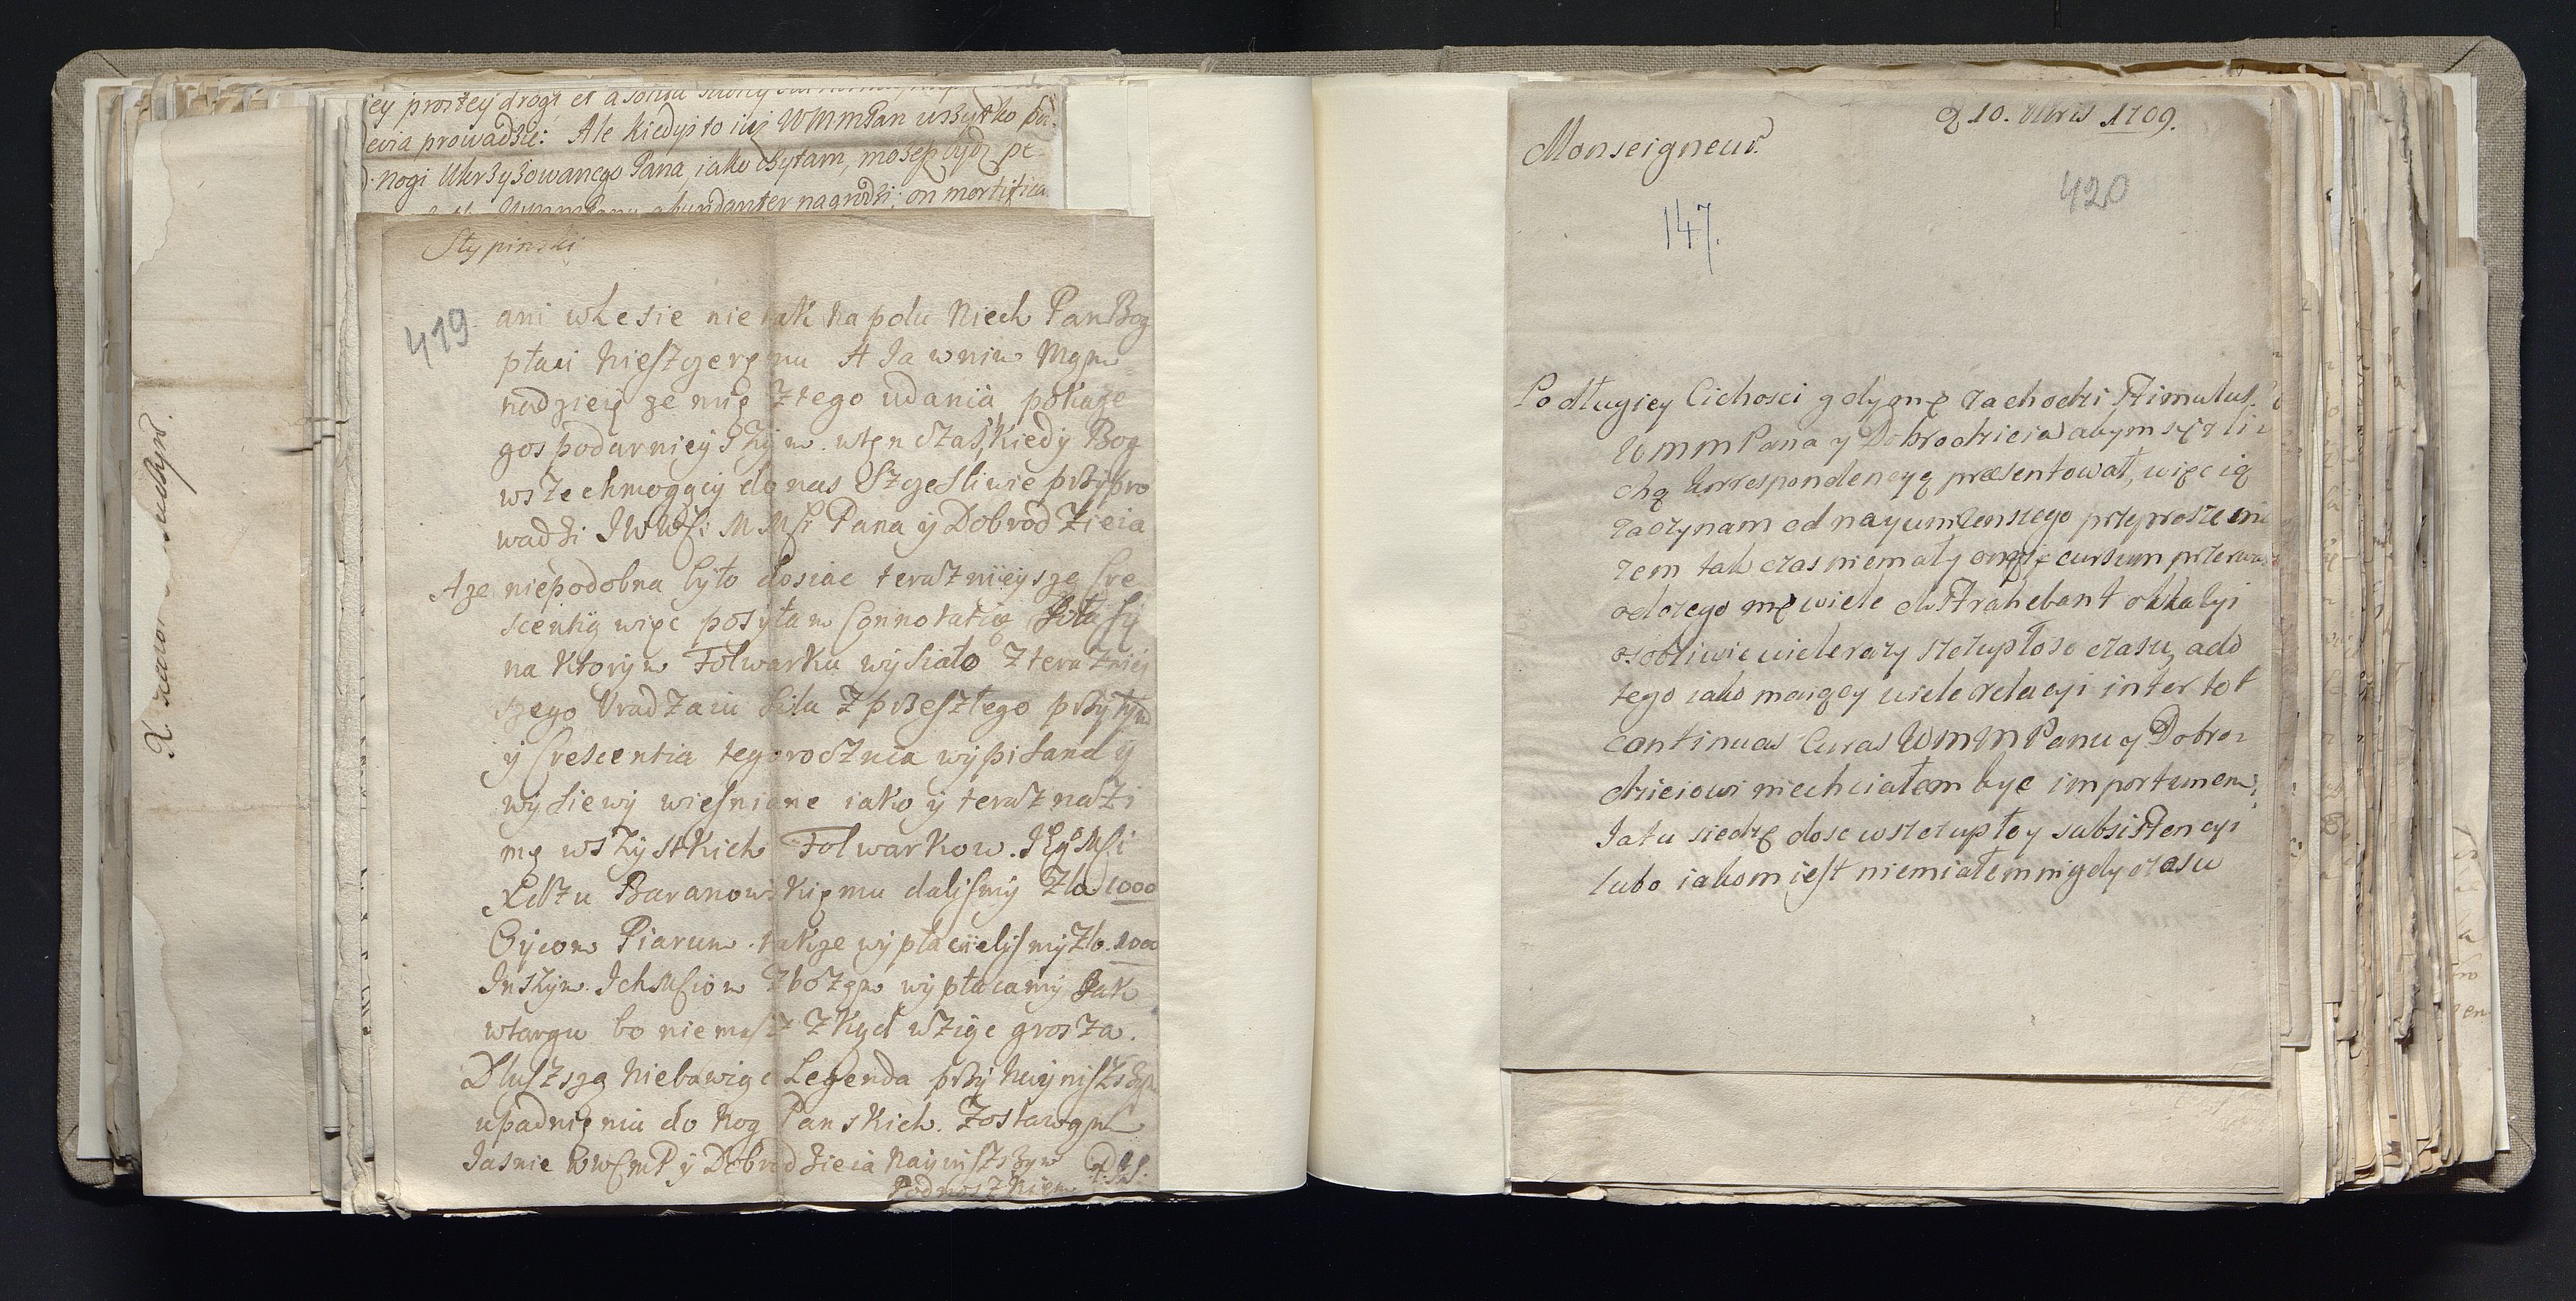 ey prostey drogi et a
prowadzić: Ale kiedyś to iuż WMMPan wszytko
nogi Ukrzyżowanego Pana, iako czytam, możesz bydź
abundanter nagrodzi; on mortifica
Stypinski
419
ani w Lesie nie tak na polu Niech Pan Bog
płaci Nieszczeremu A Ja w nim Mam
nadzieię ze mię z tego udania pokaże
gospodarnieyszym. w ten czas, kiedy Bog
wszechmogący do nas szczęsliwie przypro
wadzi JWWSi MMSi Pana y Dobrodzieia
A ze niepodobna było dosiac terazniieysze Cre
scentią więc posyłam Connotatią siła sy
na ktorym Folwarku wysiało z terazniey
szego Uradzaiu siła z przeszłego przytym
y Crescentia tegoroczna wypisana y
wysiewy wiesniane iako y teraz na zi
mę wszystkich Folwarkow. JEgMSi
Xdzu Baranowskiemu dalismy Zło 1000
Oycom Piarum. takze wypłacielysmy Zło. 1000
Inszym. IchMSiom zbozem wypłacamy Jak
w targu bo niemasz zkąd wziąc grosza.
Dłuszszą Niebawiąc Legenda przy Nayniszszym
upadnieniu do Nog Panskich. Zostawam
Jasnie WWCMP y Dobrodzieia Nayniszszym
Podnoszkiem
X.
d 10. Ubris 1709.
Monseigneur.
420
147.
Po długiey Cichosci gdy mę zachodzi stimulus
WMMPana y Dobrodzieia abym się z li
chą korrespondencyą præsentował, więc ią
zaczynam od nayunizenszego przeproszeni
zem tak czas niemały cursum przerwa
od czego mę wiele distrahebant okkazyi
osobliwie wiele razy szczupłosc czasu, a do
tego iako maiący wiele relacyi inter tot
continuas Curas WMMPanu y Dobro=
dzieiowi niechciałem byc importunem;
Ja tu siedzę dosc w szczupłey subsistencyi
lubo iakom iest niemiałem nigdy czasu